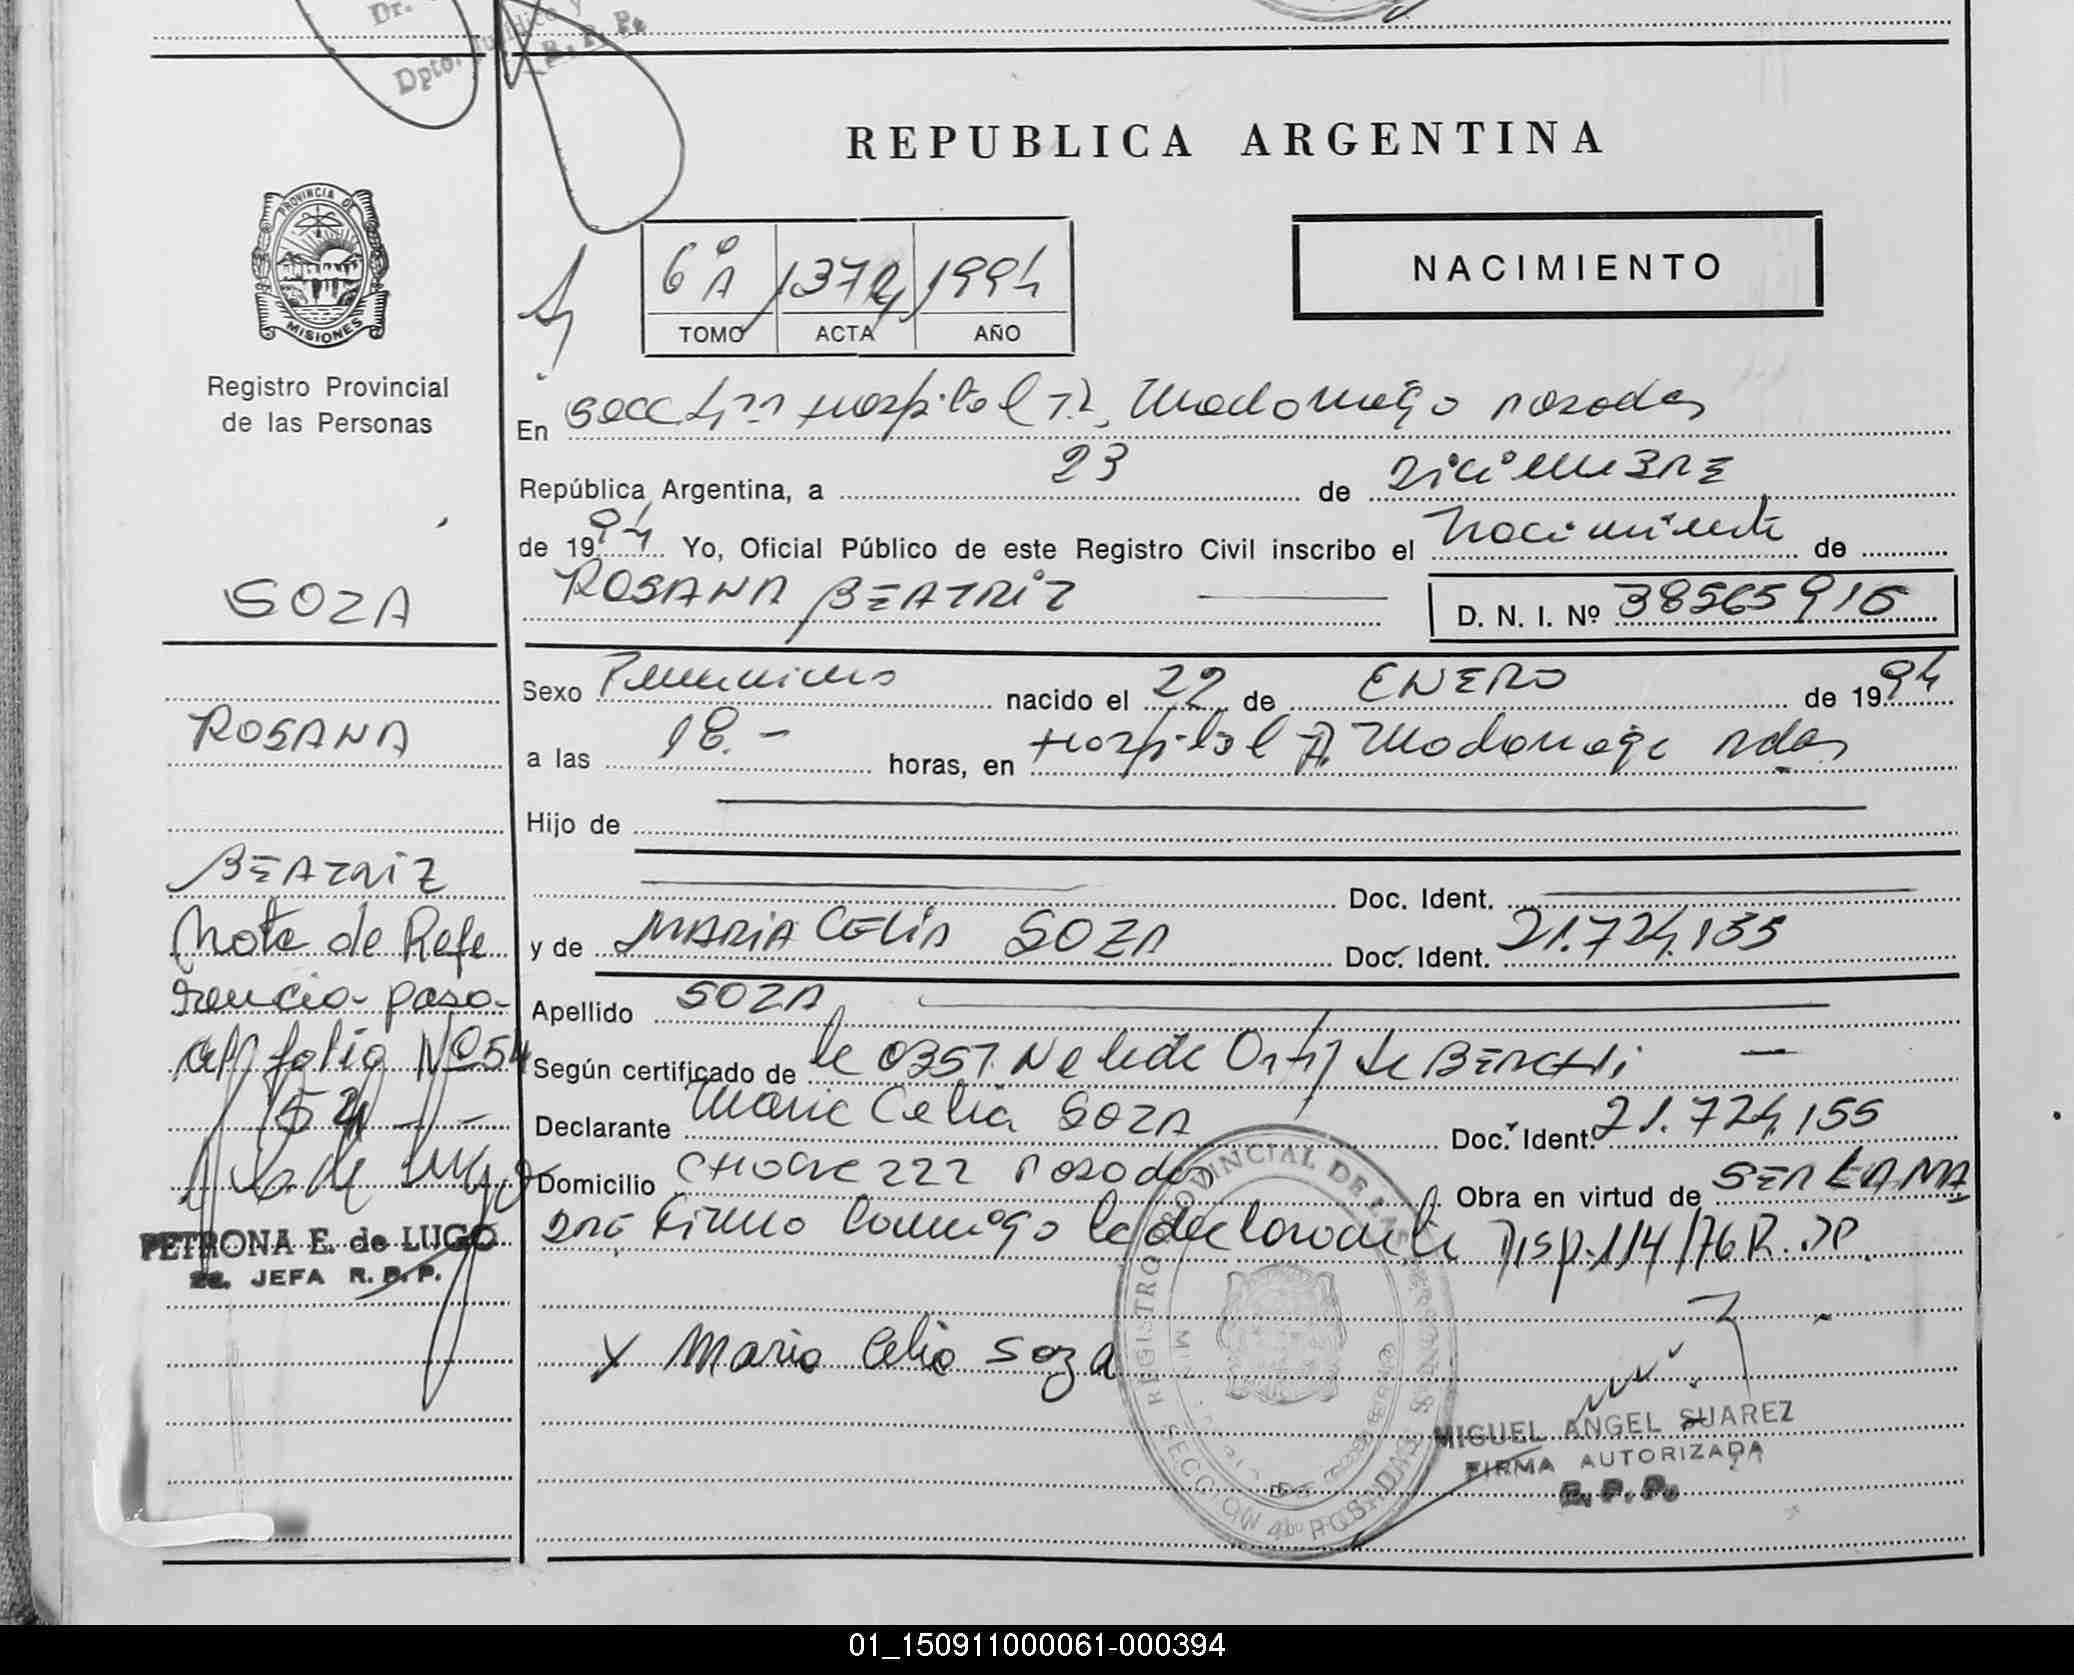 Dr.
Dpto. Jurídico y
R. P. P.
REPUBLICA ARGENTINA
PROVINCIA DE
MISIONES
Registro Provincial
de las Personas
6º A 1374 1994
TOMO ACTA AÑO
NACIMIENTO
En Secc 4ta Hospital R. Madariaga Posadas
República Argentina, a 23 de Diciembre
de 1994 Yo, Oficial Público de este Registro Civil inscribo el Nacimiento de
ROSANA BEATRIZ D. N. I. Nº 38565916
SOZA
Sexo Femenino nacido el 22 de ENERO de 1994
ROSANA
a las 18.- horas, en Hospital R. Madariaga Pdas
Hijo de
BEATRIZ
Doc. Ident.
Nota de Refe
y de MARIA CELIA SOZA Doc. Ident. 21.724.155
rencia- pasa-
Apellido SOZA
al folio Nº 54
Según certificado de le 0357 Nelide Ortiz de
154 - -
Declarante Maria Celia SOZA Doc. Ident. 21.724.155
Domicilio 222 Posadas Obra en virtud de
PETRONA E. de LUGO
2a. JEFA R.P.P.
Firmo conmigo la declarante Disp. 114/76 R. DP.
X Maria Celia Soza
REGISTRO PROVINCIAL DE LAS PERSONAS
SECCION 4ta POSADAS
MIGUEL ANGEL SUAREZ
FIRMA AUTORIZADA
R. P. P.
01_150911000061-000394